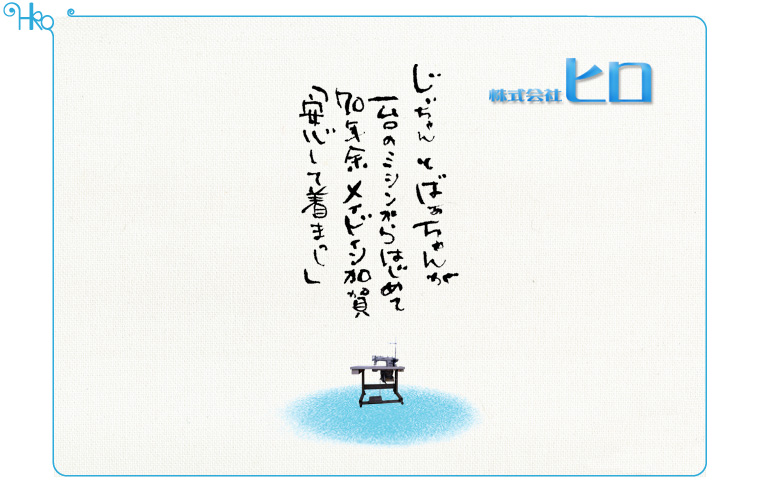 HIRO
株式会社ヒロ
じぃちゃんとばぁちゃんが
一台のミシンからはじめて
70年余メイドイン加賀
「安心して着まっし」